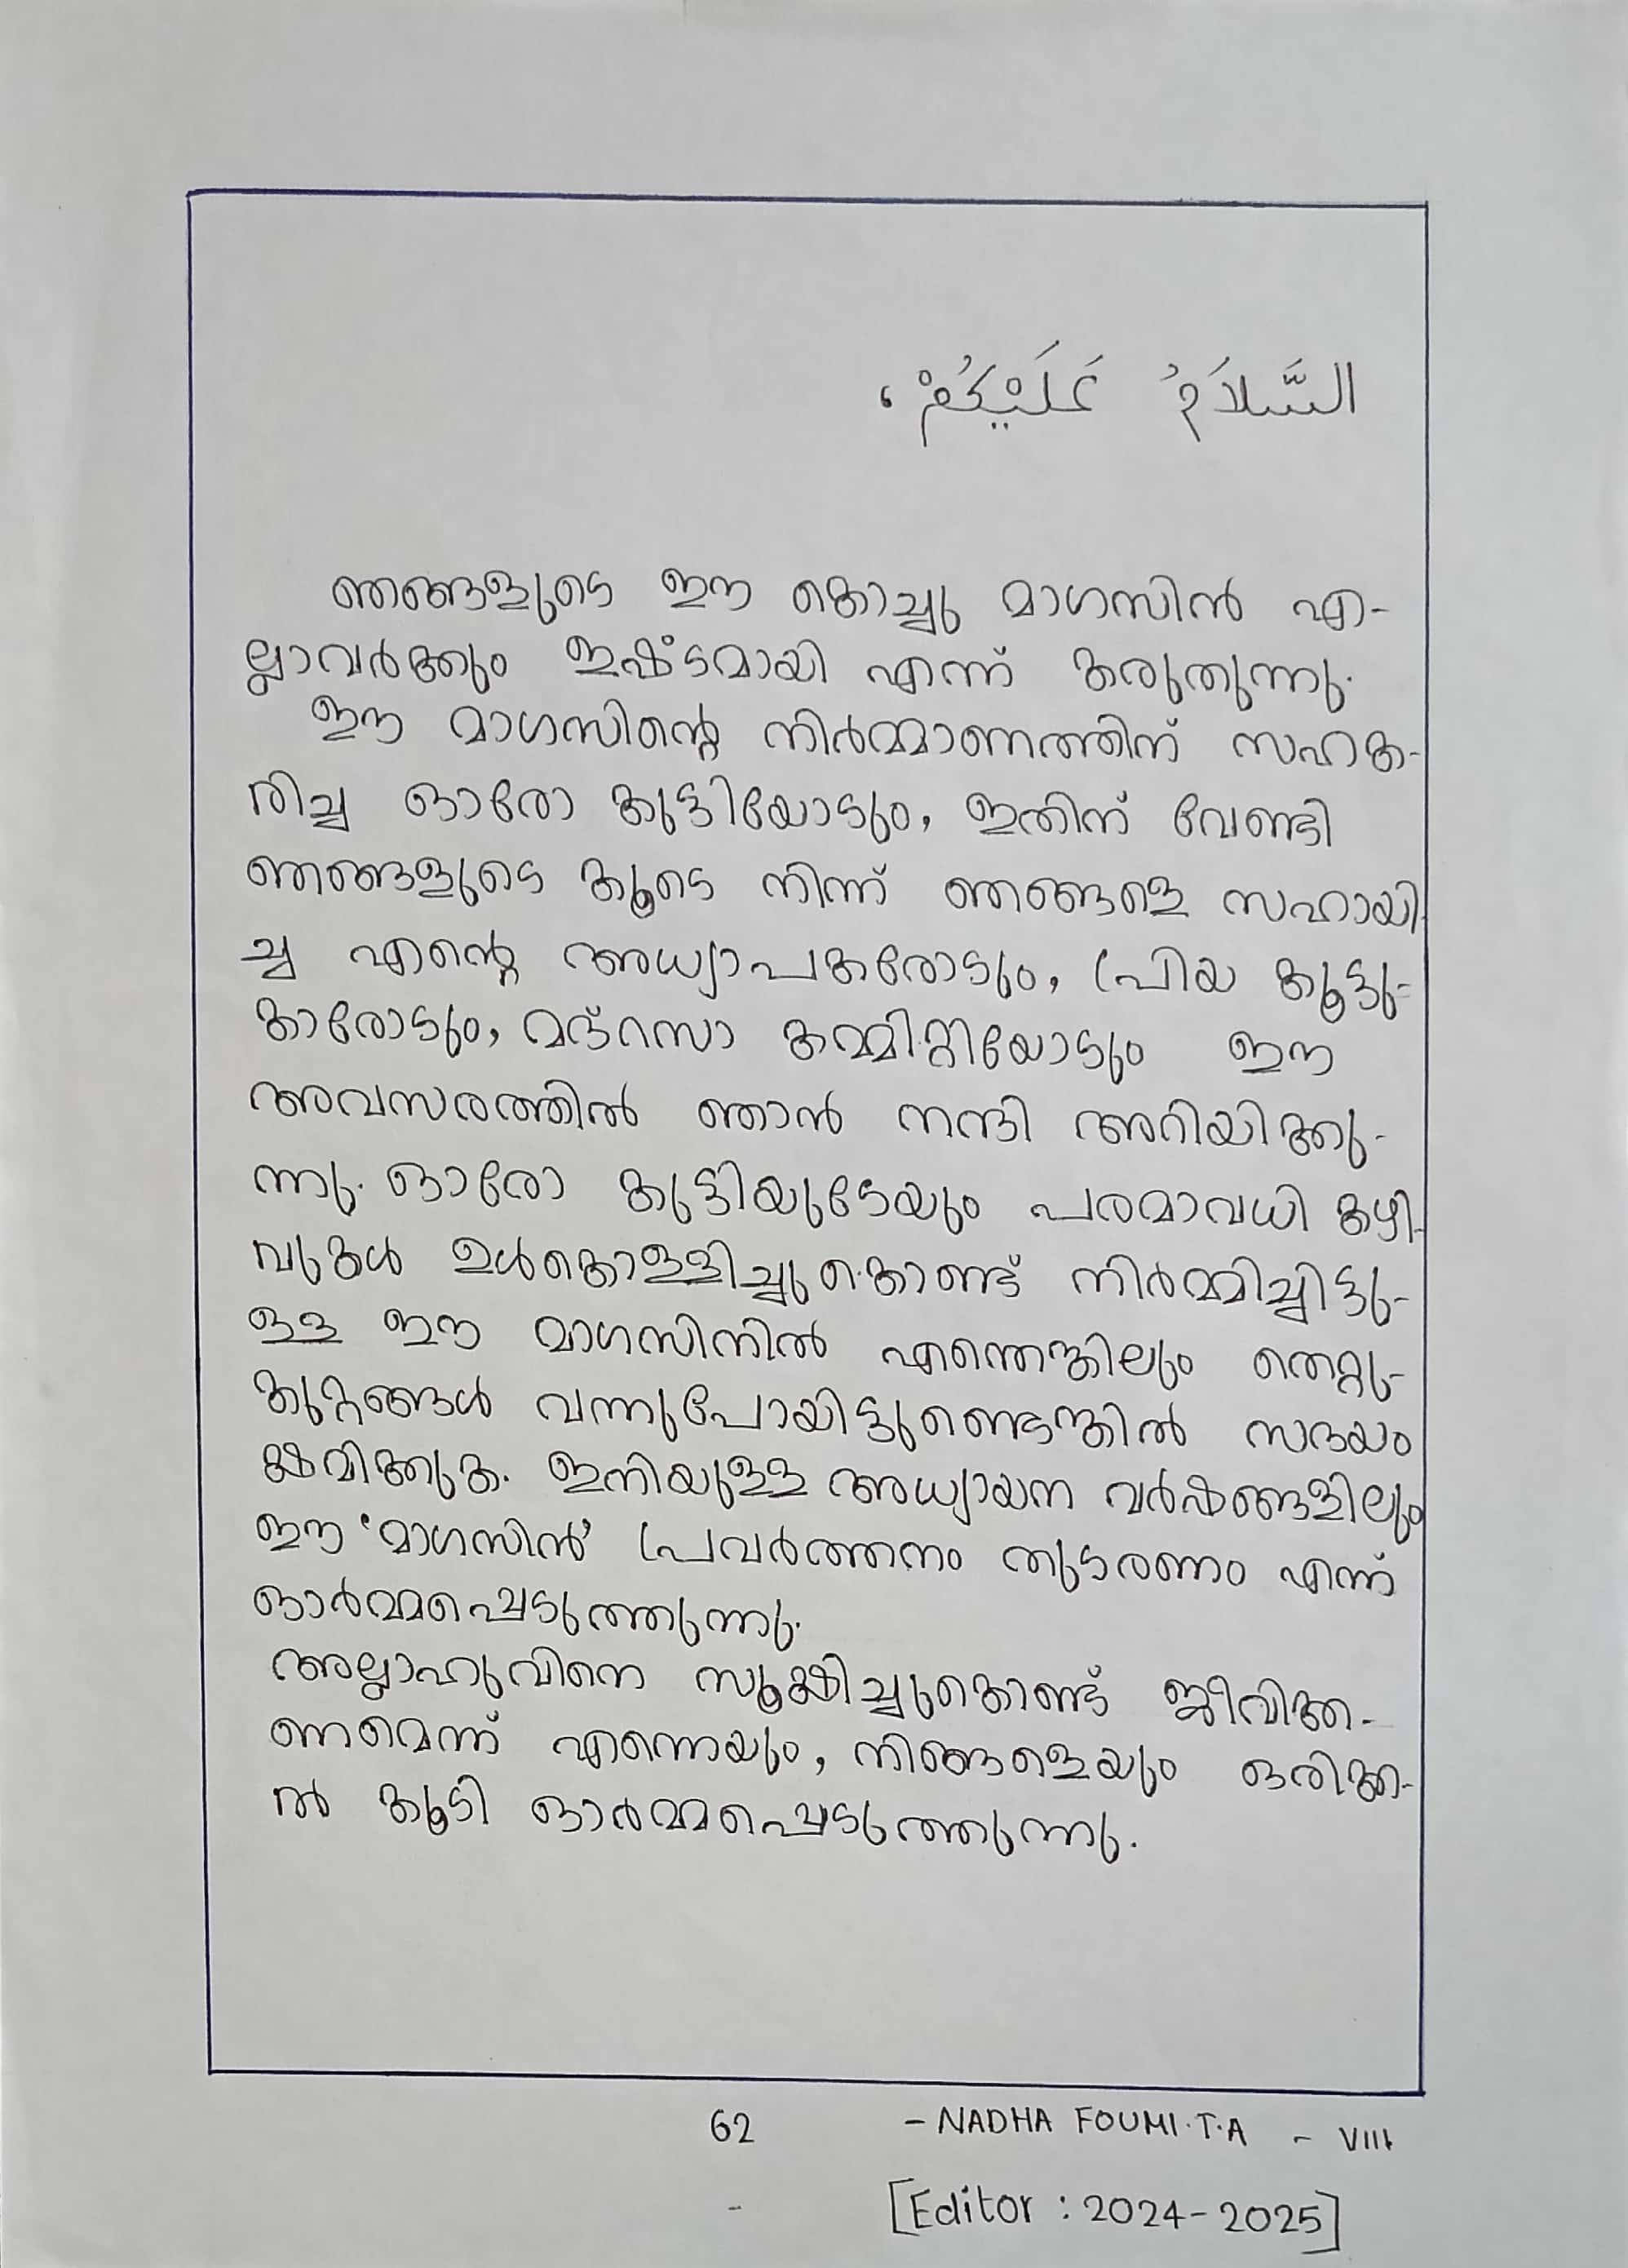 السَّلاَمُ عَلَيْكُمْ،
ഞങ്ങളുടെ ഈ കൊച്ചു മാഗസിൻ എ-
ല്ലാവർക്കും ഇഷ്ടമായി എന്ന് കരുതുന്നു.
ഈ മാഗസിന്റെ നിർമ്മാണത്തിന് സഹക-
രിച്ച ഓരോ കുട്ടിയോടും, ഇതിന് വേണ്ടി
ഞങ്ങളുടെ കൂടെ നിന്ന് ഞങ്ങളെ സഹായി-
ച്ച എന്റെ അധ്യാപകരോടും, പ്രിയ കൂട്ടു-
കാരോടും, മദ്റസാ കമ്മിറ്റിയോടും ഈ
അവസരത്തിൽ ഞാൻ നന്ദി അറിയിക്കു-
ന്നു. ഓരോ കുട്ടിയുടേയും പരമാവധി കഴി-
വുകൾ ഉൾകൊള്ളിച്ചുകൊണ്ട് നിർമ്മിച്ചിട്ടു-
ള്ള ഈ മാഗസിനിൽ എന്തെങ്കിലും തെറ്റു-
കുറ്റങ്ങൾ വന്നുപോയിട്ടുണ്ടെങ്കിൽ സദയം
ക്ഷമിക്കുക. ഇനിയുള്ള അധ്യായന വർഷങ്ങളിലും
ഈ 'മാഗസിൻ' പ്രവർത്തനം തുടരണം എന്ന്
ഓർമ്മപ്പെടുത്തുന്നു.
അല്ലാഹുവിനെ സൂക്ഷിച്ചുകൊണ്ട് ജീവിക്ക-
ണമെന്ന് എന്നെയും, നിങ്ങളെയും ഒരിക്ക-
ൽ കൂടി ഓർമ്മപ്പെടുത്തുന്നു.
62 - NADHA FOUMI.T.A - VIII
[Editor : 2024-2025]